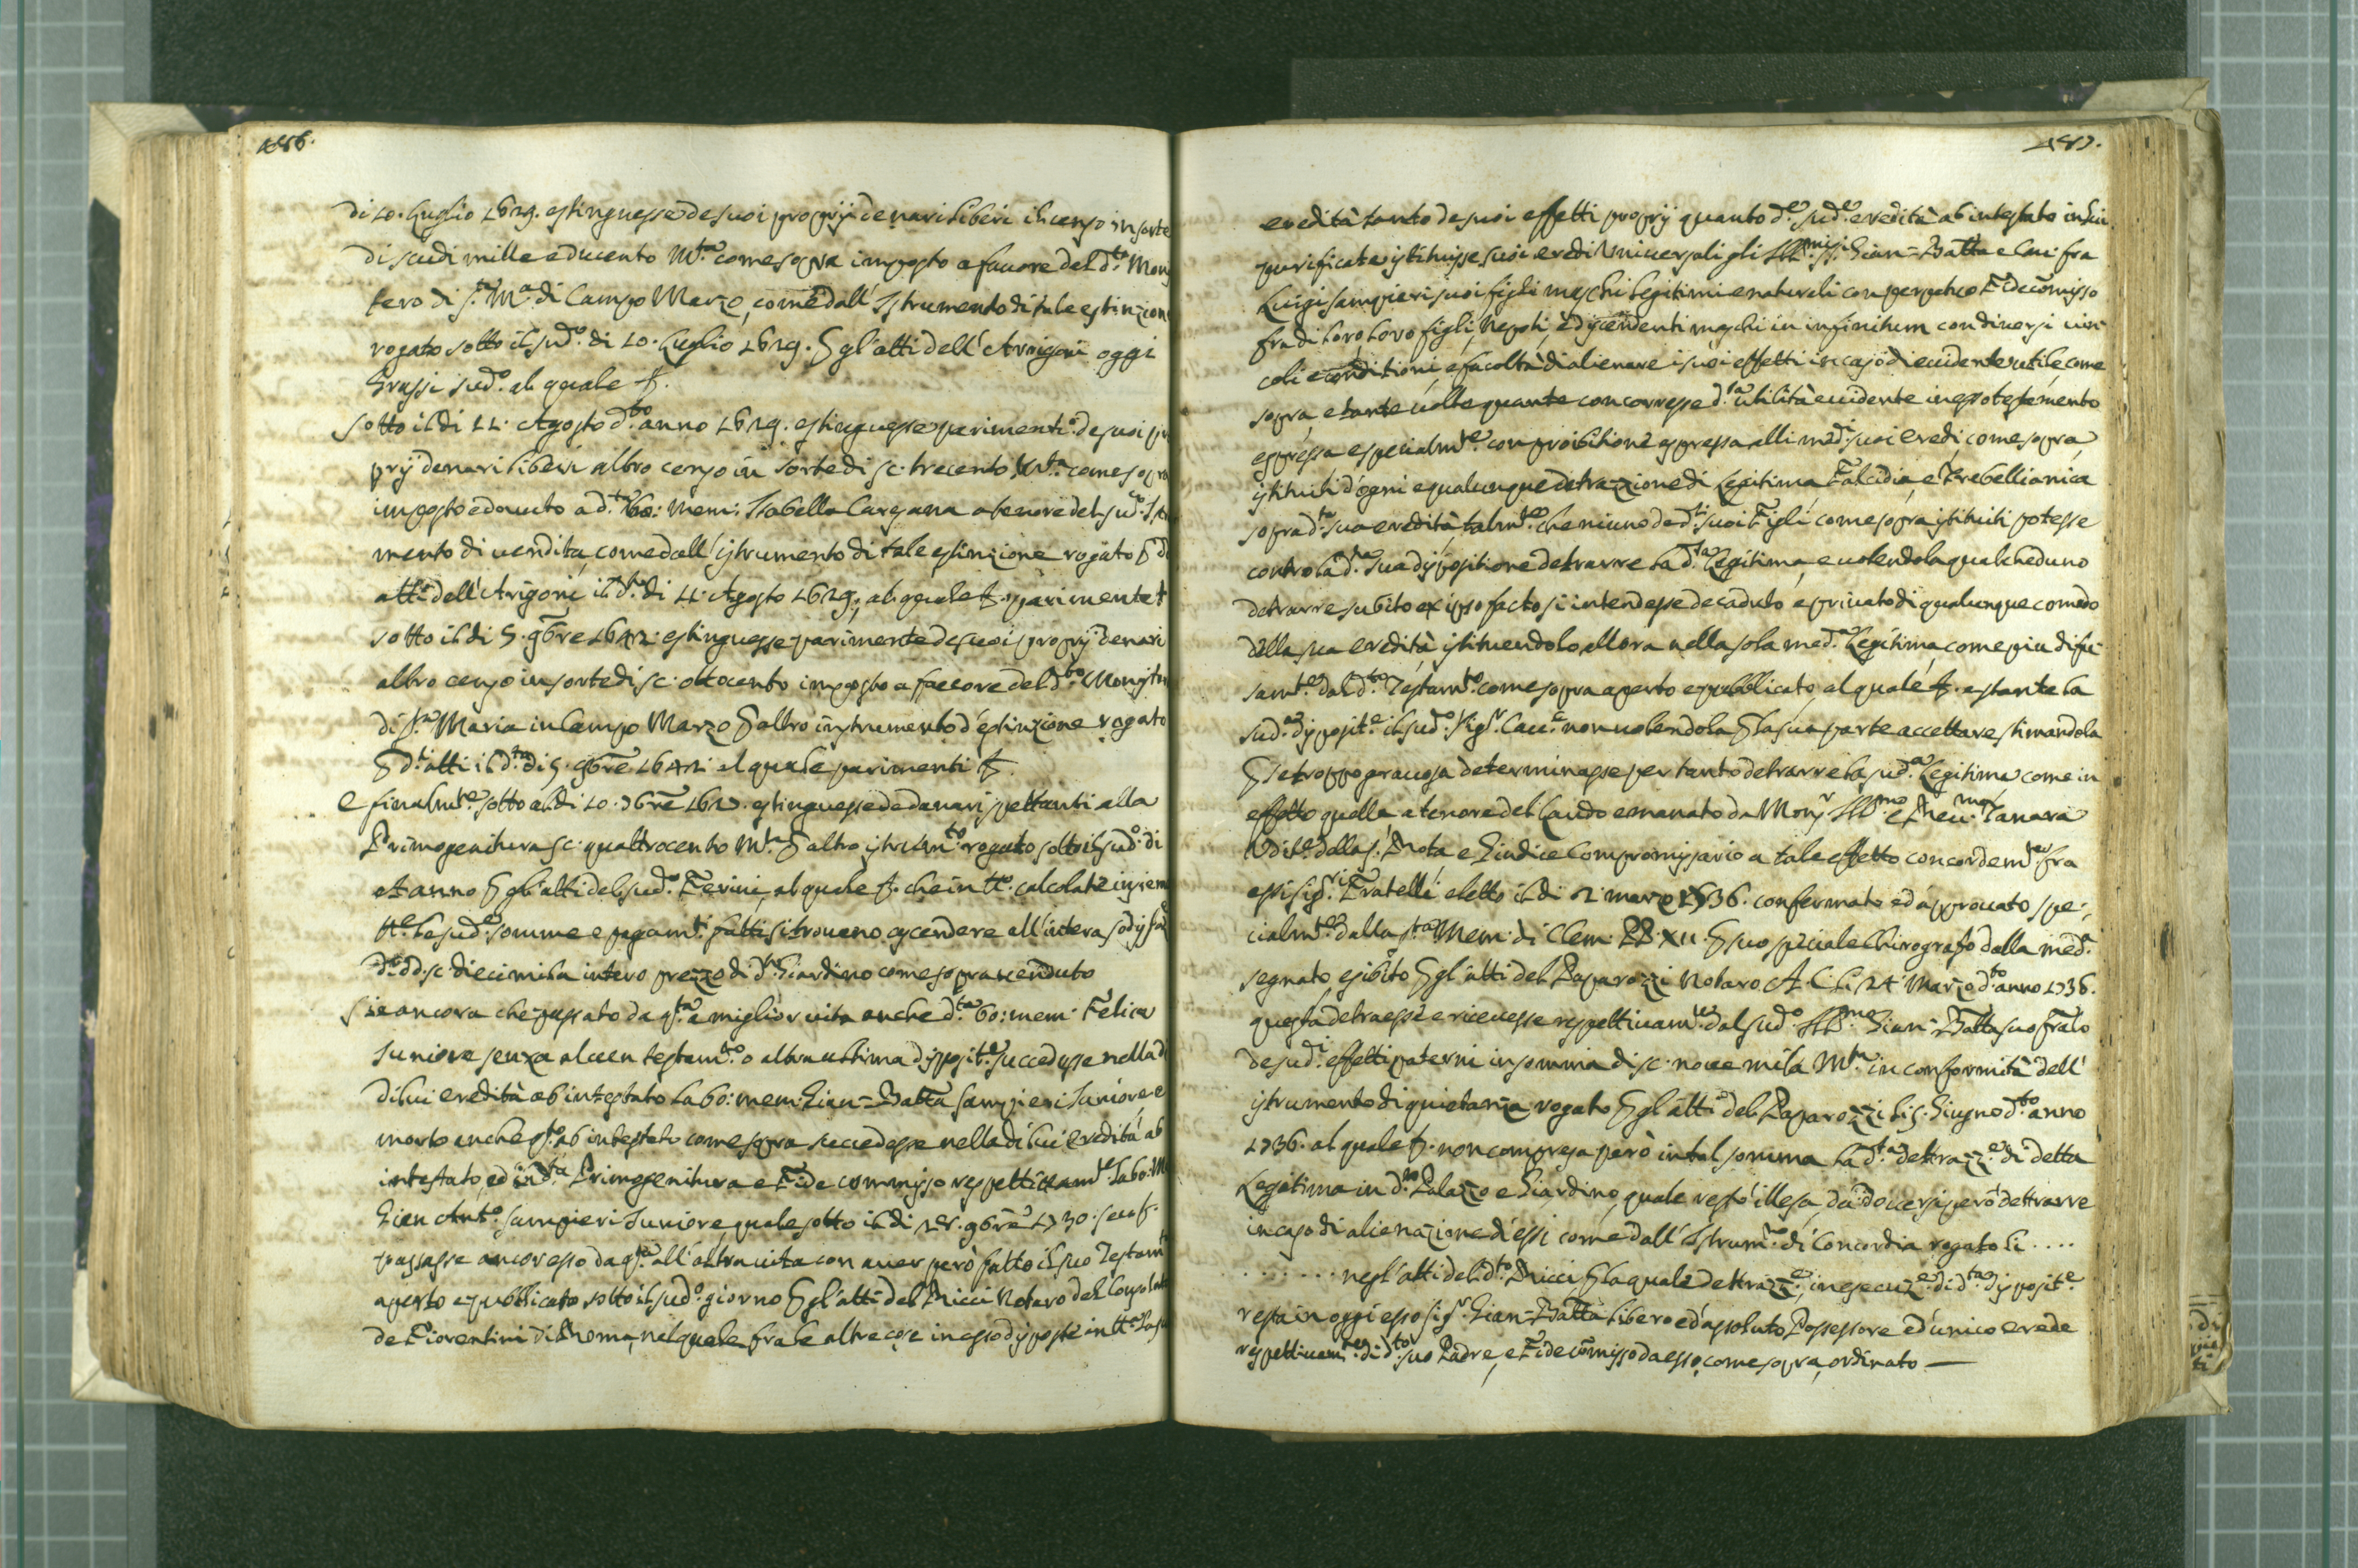 456.
di 10. Luglio 1629. estinguesse de suoi proprij denari liberi il censo in sorte
di scudi mille e ducento M.ta come sopra imposto a favore del d.to Mon
tero di S.ta M.a di Campo Marzo, come dall' Istrumento di tale estinzion
rogato sotto il sud.o di 10. Luglio 1629. P gl'atti dell' Arrigoni oggi
Grassi sud.o al quale &.
Sotto il di 11. Agosto d.to anno 1629. estinguesse parimenti de suoi pro
prij denari liberi altro censo in sorte di sc. trecento M.ta come sopra
imposto e dovuto a d.ta bo: mem: Isabella Cargana a tenore del sud.o Istr
mento di vendita, come dall' istrumento di tale estinzione rogato P d
atti dell' Arigoni il d.o di 11. Agosto 1629, al quale &. parimente
sotto il di 5. 9bre 1642. estinguesse parimente de suoi proprij denari
altro censo in sorte di sc. ottocento imposto a favore del d.to Monist
di S.ta Maria in Campo Marzo P altro instrumento d'estinzione rogato
P d.i atti il d.to di 5. 9bre 1642. al quale parimenti &.
E finalm.te sotto al di 10. Xbre estinguesse de denari spettanti alla
Primogenitura sc. quattrocento M.ta P altro istrum.to rogato sotto il sud.o di
et anno P gl'atti del sud.o Ferini, al quale &. che in tt.o calcolate insiem
tt.e le sud.e somme e pagam.ti fatti si trovano ascendere all' intera sodisfa
d.e dd. sc. diecimila intero prezzo di d.to Giardino come sopra venduto
Sie ancora che passato da q.ta a miglior vita anche d.ta bo: mem: Felice
Iuniore senza alcun testam.to o altra ultima disposit.e succedesse nella d
di lui eredità ab intestato la bo: mem: Gian-Batta Sampieri Iuniore e
morto anche q.to ab intestato come sopra succedesse nella di lui eredità ab
intestato, ed in d.ta Primogenitura e Fidecommisso respettivam.te la bo: M
Gian Ant.o Sampieri Iuniore, quale sotto il di 9bre 1730.
passasse ancor esso da q.ta all' altra vita con aver però fatto il suo Testam.t
aperto e pubblicato sotto il sud.o giorno P gl'atti del Ricci Notaro del Consolat
de Fiorentini di Roma, nel quale fra le altre cose in esso disposte in tt.a la su
457.
eredità tanto de suoi effetti proprij quanto d.e sud.e eredità ab intestato in lui
purificate istituisse suoi eredi Universali gli Ill.mi SS.i Gian-Batta e Cav: fra
Luigi Sampieri suoi figli maschi legitimi e naturali con perpetuo Fidecomisso
fra di loro loro figli, Nepoti, e discendenti maschi in infinitum con diversi vin
coli e condizioni e facoltà di alienare i suoi effetti in caso di evidente utile come
sopra, e tante volte quante concorresse d.ta utilità evidente in esso testamento
espressa e specialm.te con proibitione espressa alli med.i suoi eredi, come sopra
istituiti d'ogni e qualunque detrazzione di Legitima, Falcidia, e Trebellianica
sopra d.ta sua eredità, talm.te che niuno de d.ti suoi Figli come sopra istituiti potesse
contro la d.ta sua dispositione detrarre la d.ta Legitima, e volendola qualcheduno
detrarre subito ex ipso facto si intendesse decaduto, e privato di qualunque comodo
della sua eredità istituendolo allora nella sola med.a Legitima, come piu difu
sam.te dal d.to Testam.to come sopra aperto e pubblicato, al quale &. e stante la
sud.a disposit.e il sud.o Sig.r Cav.e non volendola P la sua parte accettare stimandola
P se troppo gravosa determinasse per tanto detrarre la sud.a Legitima, come in
effetto quella a tenore del Laudo emanato da Mons.r Ill.mo e Rev.mo Tanara
Udit.e della S. Rota e Giudice Compromissario a tale effetto concordem.te fra
essi Sig.ri Fratelli eletto il di 2 marzo 1736. confermato ed approvato spe:
cialm.te dalla S.ta Mem: di Clem: PP. XII. P suo speciale Chirografo dalla med.a
segnato, esibito P gl'atti del Paparozzi Notaro A. C. li 24 Marzo d.to anno 1736.
questa detraesse e ricevesse respettivam.te dal sud.o Ill.mo Gian-Batta suo fratello
de sud.i effetti paterni in somma di sc. nove mila M.ta in conformità dell'
istrumento di quietanza rogato P gl'atti del Paparozzi li 5. Giugno d.to anno
1736. al quale &. non compresa però in tal somma la d.ta detrazz.e di detta
Legitima in d.to Palazzo e Giardino, quale restò illesa, da doversi però dettrarre
in caso di alienazione d'essi come dall' Istrum.to di Concordia rogato li ....
........ negl'atti del d.to Ricci P la quale dettrazz.e, in esecuz.e di d.ta disposit.e
resta in oggi esso Sig.r Gian-Batta libero ed assoluto Possessore ed unico erede
respettivam.te di d.to suo Padre, e Fidecomisso da esso, come sopra, ordinato —